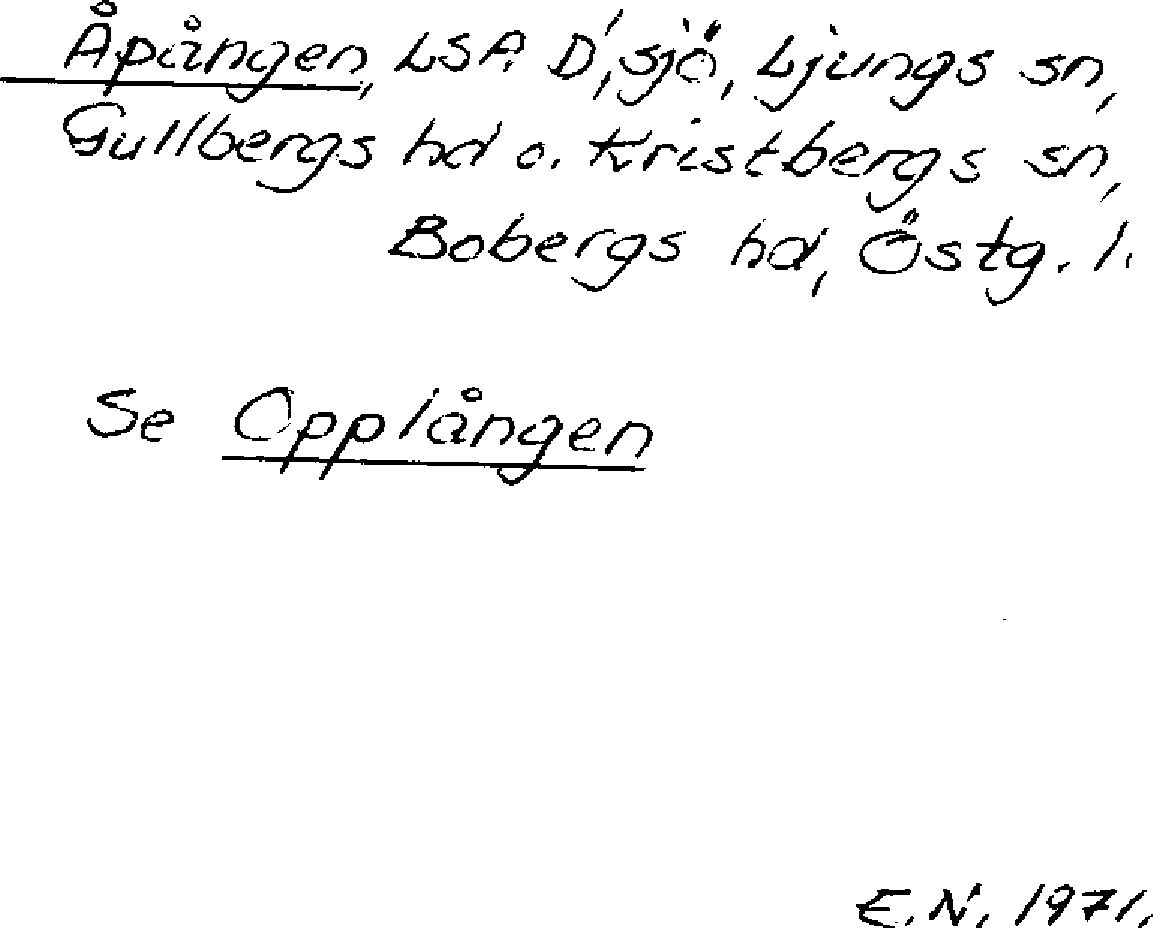 Åpången, LSA D1, sjö, Ljungs sn,
Gullbergs hd o. Kristbergs sn,
Bobergs hd, Östg. l.
Se Opplången
E.N. 1971.